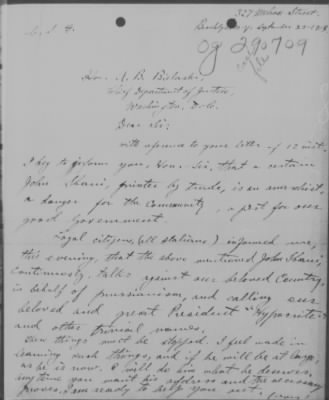 327 Melrose Street.
Brooklyn N.Y. September 23-1918
Og 290709
Hon. A. B. Bielaski,
Chief Department of Justice,
Washington, D.C.
Dear Sir:
with reference to your letter of 12 inst.
I beg to inform you, Hon. Sir, that a certain
John Shani, printer by trade, is an anarchist,
a danger for the Community, a pest for our
good Government.
Loyal citizens, (all italians) informed me,
this evening, that the above mentioned John Shani,
Continuously, talks against our beloved Country,
in behalf of prussianism, and calling our
beloved and great President "Hypocrite"
and other names.
Such things must be stopped. I feel mad in
learning such things, and if he will be at large,
as he is now, I will do him what he deserves.
Anytime you want his address and the necessary
I am ready to help you out.